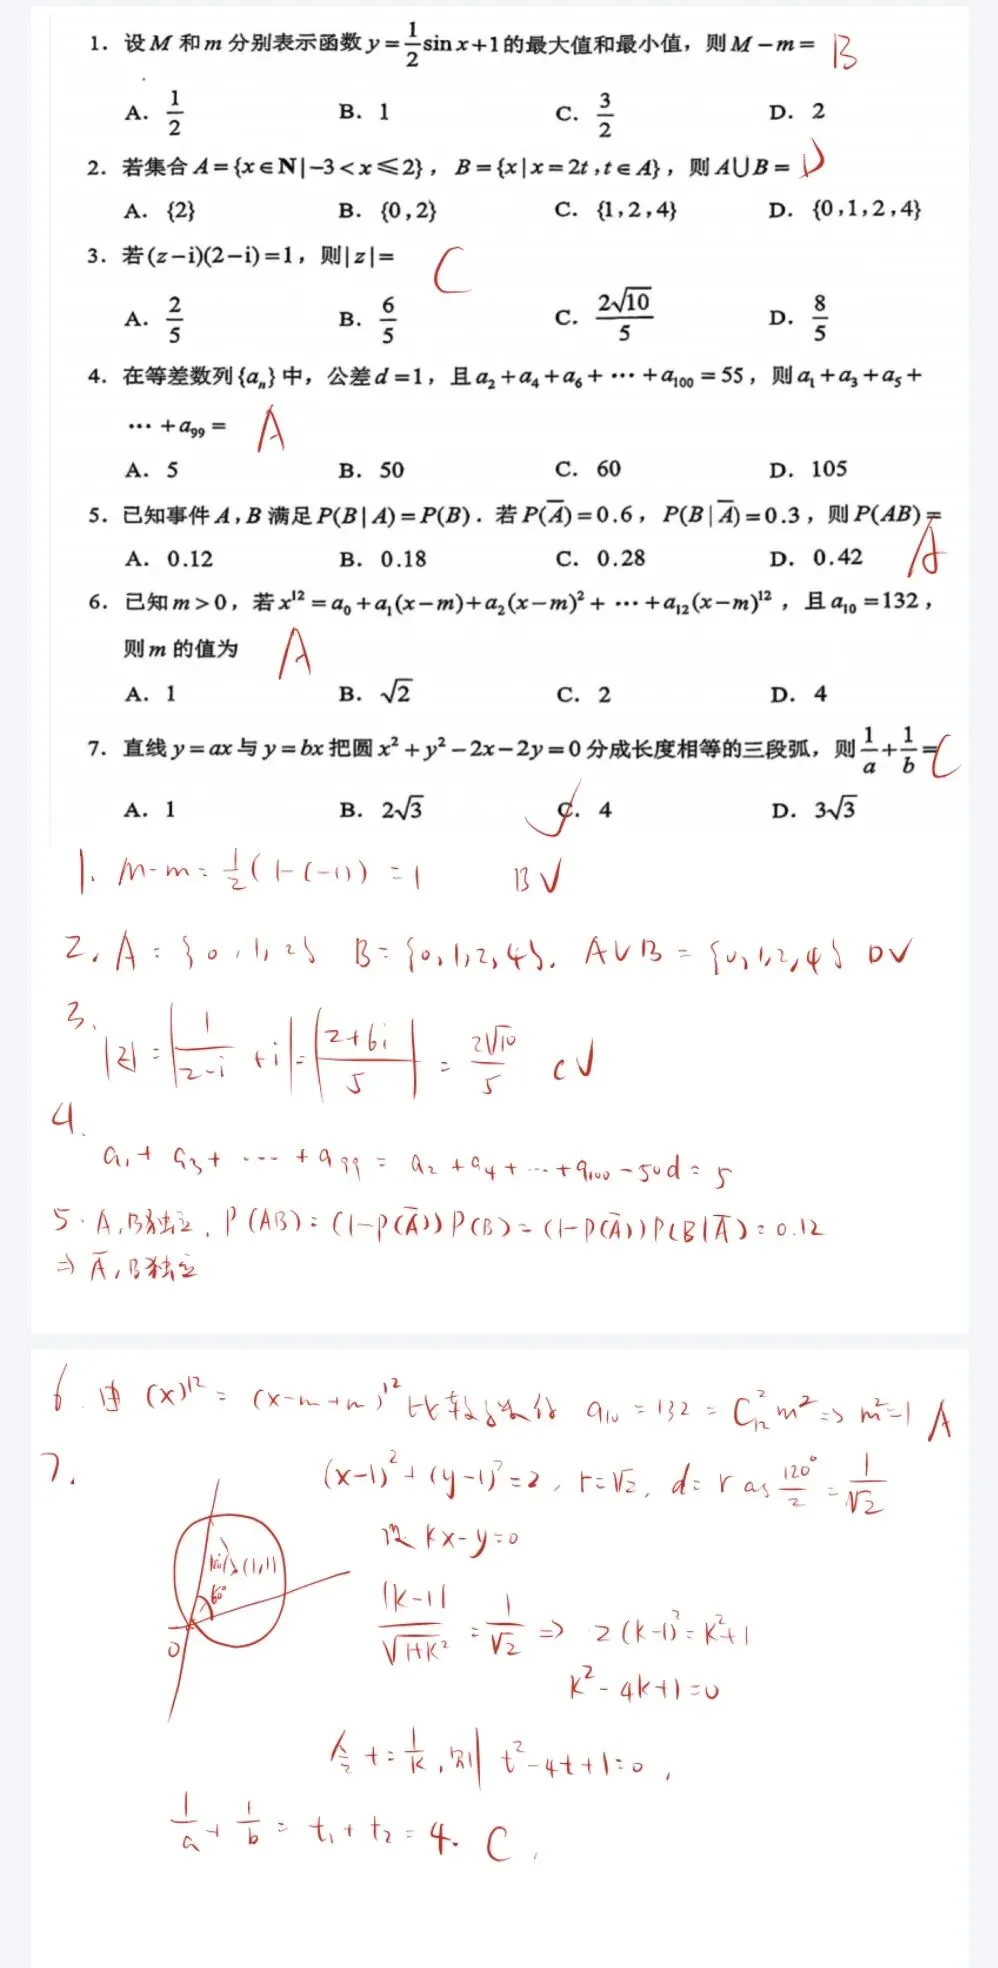 1. 设M和m分别表示函数y=1/2 sin x+1的最大值和最小值,则M-m= B
A. 1/2 B. 1 C. 3/2 D. 2
2. 若集合A={x∈N|-3<x≤2}, B={x|x=2t,t∈A}, 则A∪B= D
A. {2} B. {0,2} C. {1,2,4} D. {0,1,2,4}
3. 若(z-i)(2-i)=1, 则|z|= C
A. 2/5 B. 6/5 C. 2√10/5 D. 8/5
4. 在等差数列{aₙ}中,公差d=1,且a₂+a₄+a₆+⋯+a₁₀₀=55,则a₁+a₃+a₅+
⋯+a₉₉= A
A. 5 B. 50 C. 60 D. 105
5. 已知事件A,B满足P(B|A)=P(B). 若P(A̅)=0.6, P(B|A̅)=0.3, 则P(AB)=
A. 0.12 B. 0.18 C. 0.28 D. 0.42 A
6. 已知m>0, 若x¹²=a₀+a₁(x-m)+a₂(x-m)²+⋯+a₁₂(x-m)¹², 且a₁₀=132,
则m的值为 A
A. 1 B. √2 C. 2 D. 4
7. 直线y=ax与y=bx把圆x²+y²-2x-2y=0分成长度相等的三段弧,则1/a+1/b= C
A. 1 B. 2√3 C. 4 D. 3√3
1. M-m=1/2(1-(-1))=1 B√
2. A={0,1,2} B={0,1,2,4}. A∪B={0,1,2,4} D√
3.
|z|=|1/(2-i)+i|=|(2+6i)/5|=2√10/5 C√
4.
a₁+a₃+⋯+a₉₉=a₂+a₄+⋯+a₁₀₀-50d=5
5. A,B独立, P(AB)=(1-P(A̅))P(B)=(1-P(A̅))P(B|A̅)=0.12
⇒A̅,B独立
6. 由(x)¹²=(x-m+m)¹²比较系数得 a₁₀=132=C₁₂²m²⇒m²=1 A
7.
(x-1)²+(y-1)²=2, r=√2, d=r cos 120°/2=1/√2
设kx-y=0
(1,1)
60°
O
|k-1|/√(1+k²)=1/√2⇒2(k-1)²=k²+1
k²-4k+1=0
令t=1/k,则t²-4t+1=0,
1/a+1/b=t₁+t₂=4. C.